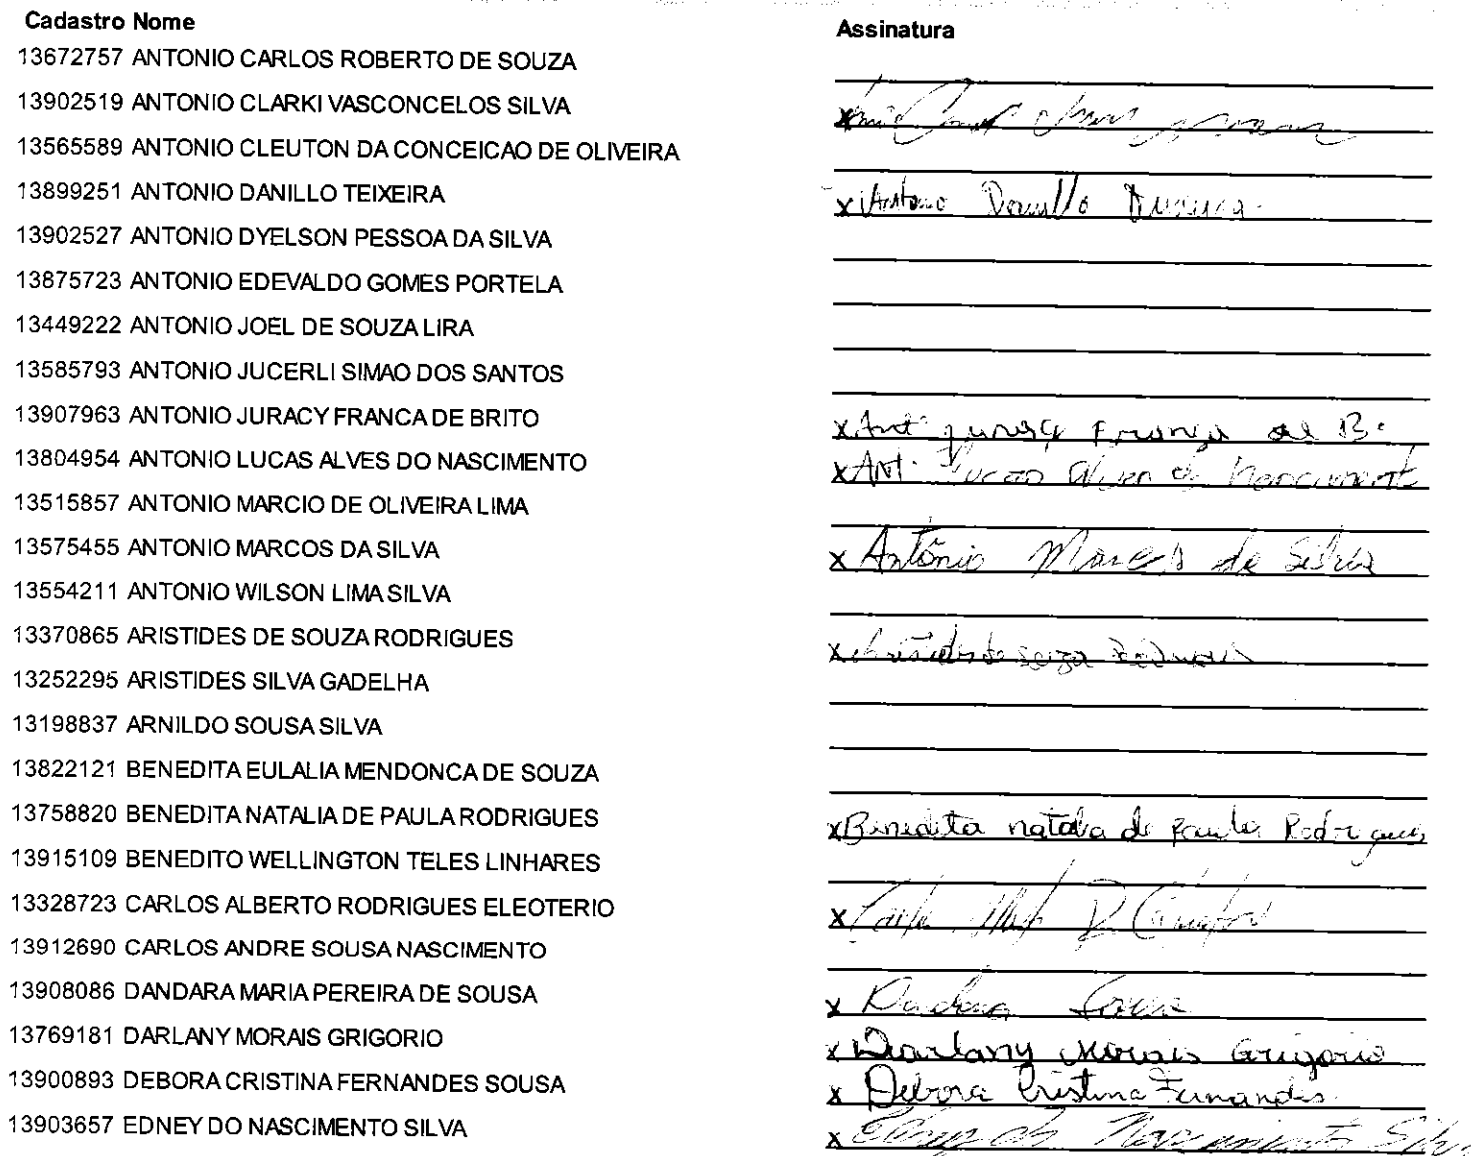 Cadastro Nome Assinatura
13672757 ANTONIO CARLOS ROBERTO DE SOUZA
13902519 ANTONIO CLARKI VASCONCELOS SILVA x
13565589 ANTONIO CLEUTON DA CONCEICAO DE OLIVEIRA
13899251 ANTONIO DANILLO TEIXEIRA x Antonio Danillo
13902527 ANTONIO DYELSON PESSOA DA SILVA
13875723 ANTONIO EDEVALDO GOMES PORTELA
13449222 ANTONIO JOEL DE SOUZA LIRA
13585793 ANTONIO JUCERLI SIMAO DOS SANTOS
13907963 ANTONIO JURACY FRANCA DE BRITO x Antº juracy França de B.
13804954 ANTONIO LUCAS ALVES DO NASCIMENTO x Ant. Lucas Alves do Nascimento
13515857 ANTONIO MARCIO DE OLIVEIRA LIMA
13575455 ANTONIO MARCOS DA SILVA x Antônio Marcos da Silva
13554211 ANTONIO WILSON LIMA SILVA
13370865 ARISTIDES DE SOUZA RODRIGUES x Aristides de Souza Rodrigues
13252295 ARISTIDES SILVA GADELHA
13198837 ARNILDO SOUSA SILVA
13822121 BENEDITA EULALIA MENDONCA DE SOUZA
13758820 BENEDITA NATALIA DE PAULA RODRIGUES x Benedita natalia de Paula Rodrigues
13915109 BENEDITO WELLINGTON TELES LINHARES
13328723 CARLOS ALBERTO RODRIGUES ELEOTERIO x
13912690 CARLOS ANDRE SOUSA NASCIMENTO
13908086 DANDARA MARIA PEREIRA DE SOUSA x Dandara Sousa
13769181 DARLANY MORAIS GRIGORIO x Darlany Morais Grigorio
13900893 DEBORA CRISTINA FERNANDES SOUSA x Debora Cristina Fernandes
13903657 EDNEY DO NASCIMENTO SILVA x Edney do Nascimento Silva